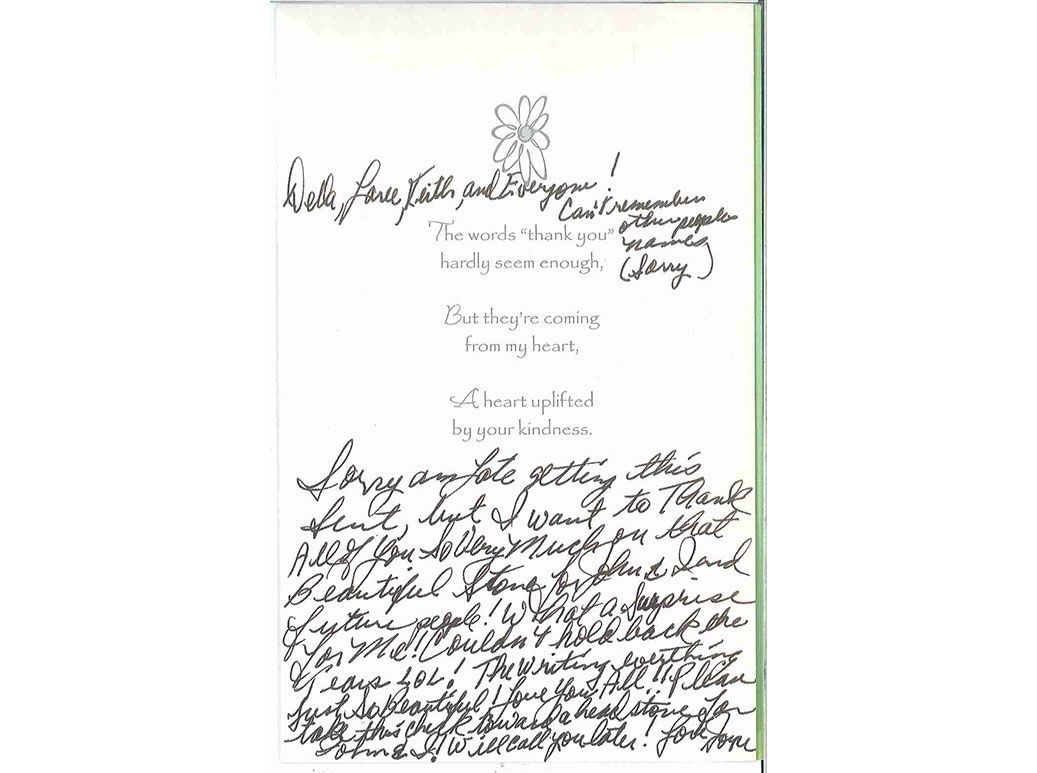 Della, Loree, Keith, and Everyone!
Can't remember
other peoples
names
(Sorry)
The words “thank you”
hardly seem enough,
But they're coming
from my heart,
A heart uplifted
by your kindness.
Sorry am late getting this
sent, but I want to Thank
All of You So Very Much on that
Beautiful Stone for John & I and
future people! What a Surprise
for Me! Couldn't hold back the
Tears LOL! The Writing, everthing
Just So Beautiful! Love You All!! Please
take this check toward a head stone for
John & I! Will call you later! Love